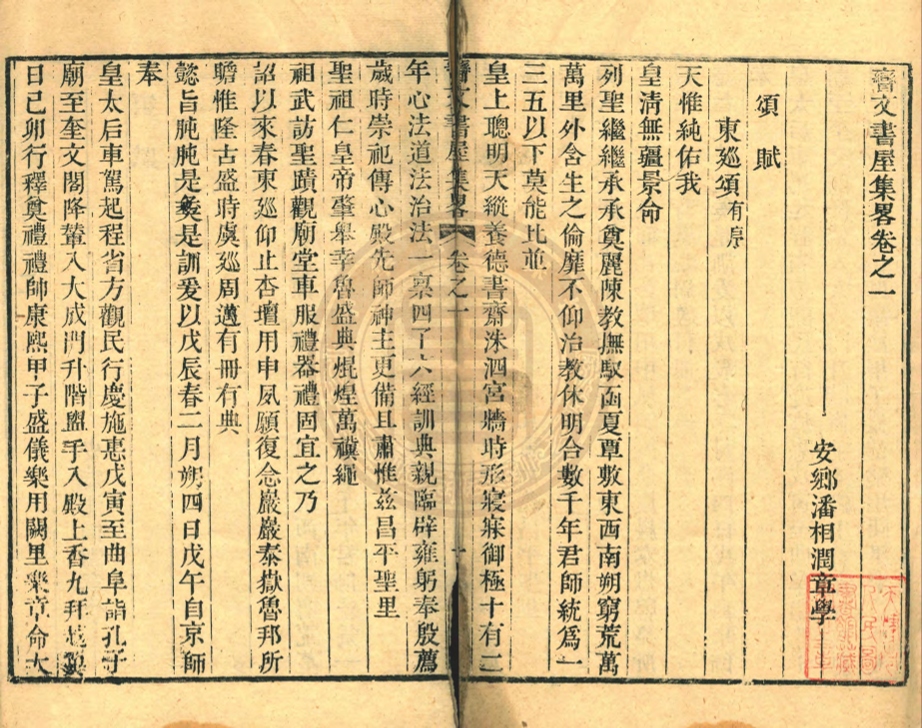 𦒱文書屋集畧卷之一
安鄉潘相潤章學
頌賦
東廵頌有序
天惟純佑我
皇清無疆景命
列聖繼繼承承奠麗陳教撫馭函夏覃敷東西南朔窮荒萬
萬里外含生之倫靡不仰治教休明合數千年君師統為一
三五以下莫能比並
皇上聰明天縱養德書齋洙泗宮牆時形寢寐御極十有二
文書屋集畧 卷之一 十
年心法道法治法一稟四子六經訓典親臨辟雍躬奉殷薦
歲時崇祀傳心殿先師神主更備且肅惟茲昌平聖里
聖祖仁皇帝肇舉幸魯盛典焜煌萬禩繩
祖武訪聖蹟觀廟堂車服禮器禮固宜之乃
詔以來春東廵仰止杏壇用申夙願復念巖巖泰嶽魯邦所
瞻惟隆古盛時虞廵周邁有冊有典
懿旨肫肫是彝是訓爰以戊辰春二月朔四日戊午自京師
奉
皇太后車駕起程省方觀民行慶施惠戊寅至曲阜詣孔子
廟至奎文閣降輦入大成門升階盥手入殿上香九拜越翼
日己卯行釋奠禮禮師康熙甲子盛儀樂用闕里樂章命大